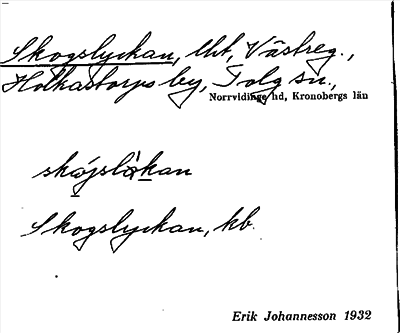 Skogslyckan, lht, Västreg.,
Holkastorps by, Tolg sn.,
Norrvidinge hd, Kronobergs län
skójslàkan
Skogslyckan, kb.
Erik Johannesson 1932